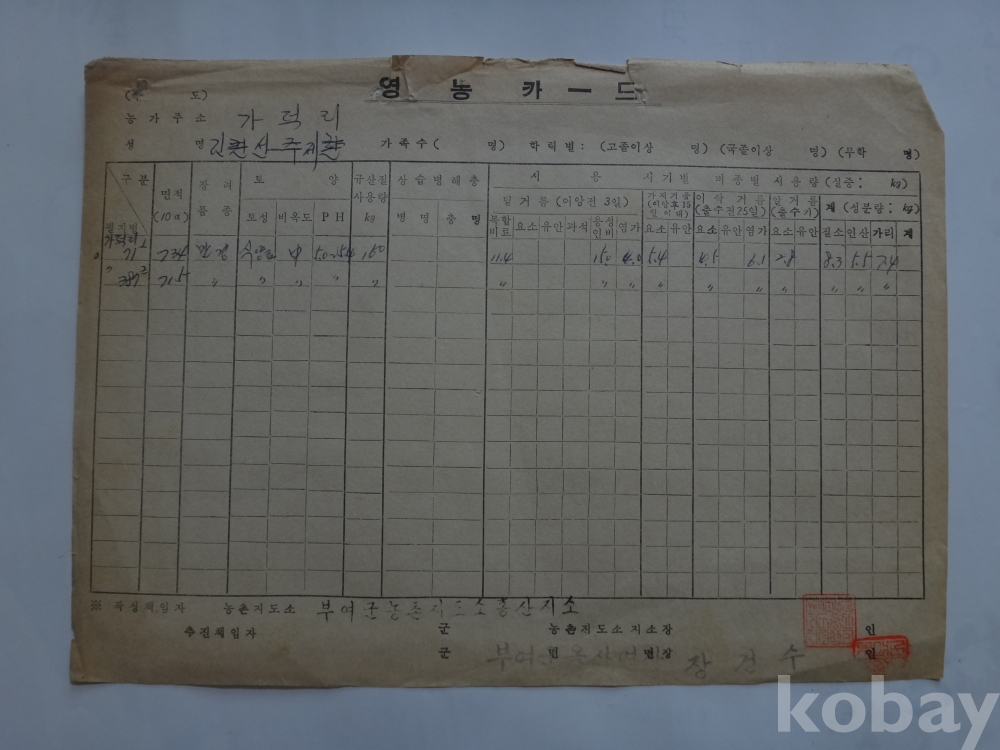 영 농 카 ー 드
도)
농 가 주 소 가 덕 리
성 명 가 족 수 ( 명) 학 력 별 : (고졸이상 명) (국졸이상 명) (무학 명)
구 분 면적 (10a) 장 려 품 종 토 양 규산질 사용량 kg 상 습 병 해 충 시 용 시 기 별 비 종 별 시 용 량 (실중: kg)
토성 비옥도 P H 병 명 충 명 밑 거 름 (이앙전 3일) 가지거름 (이앙후 15일 이내) 이 삭 거 름 (출수전25일) 알 거 름 (출수기) 계 (성분량: kg)
필지별 복합비료 요소 유안 과석 용성인비 염가 요소 유안 요소 유안 염가 요소 유안 질소 인산 가리 계
가덕리 71 식양토 中 150 11.4 15.0 4.0 5.4 4.5 6.1 2.8 8.3 5.5 7.4
387 71.5 〃 〃 〃 〃 〃 〃 〃 〃 〃 〃 〃 〃 〃 〃 〃
※ 작성책임자 농촌지도소 부여군농촌지도소홍산지소
추진책임자 군 농촌지도소 지소장 인
군 면 면장 장 건 수 인
kobay